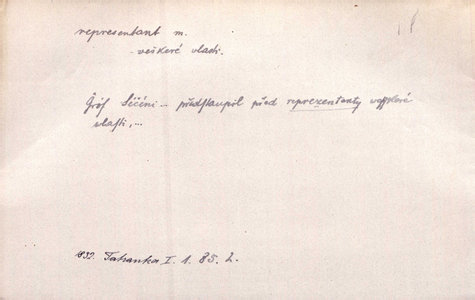 representant m.
- veškeré vlasti.
Gróf Séčéni - předstaupil před reprezentanty
vlasti,...
1832. Tatranka I. 1. 85. L.